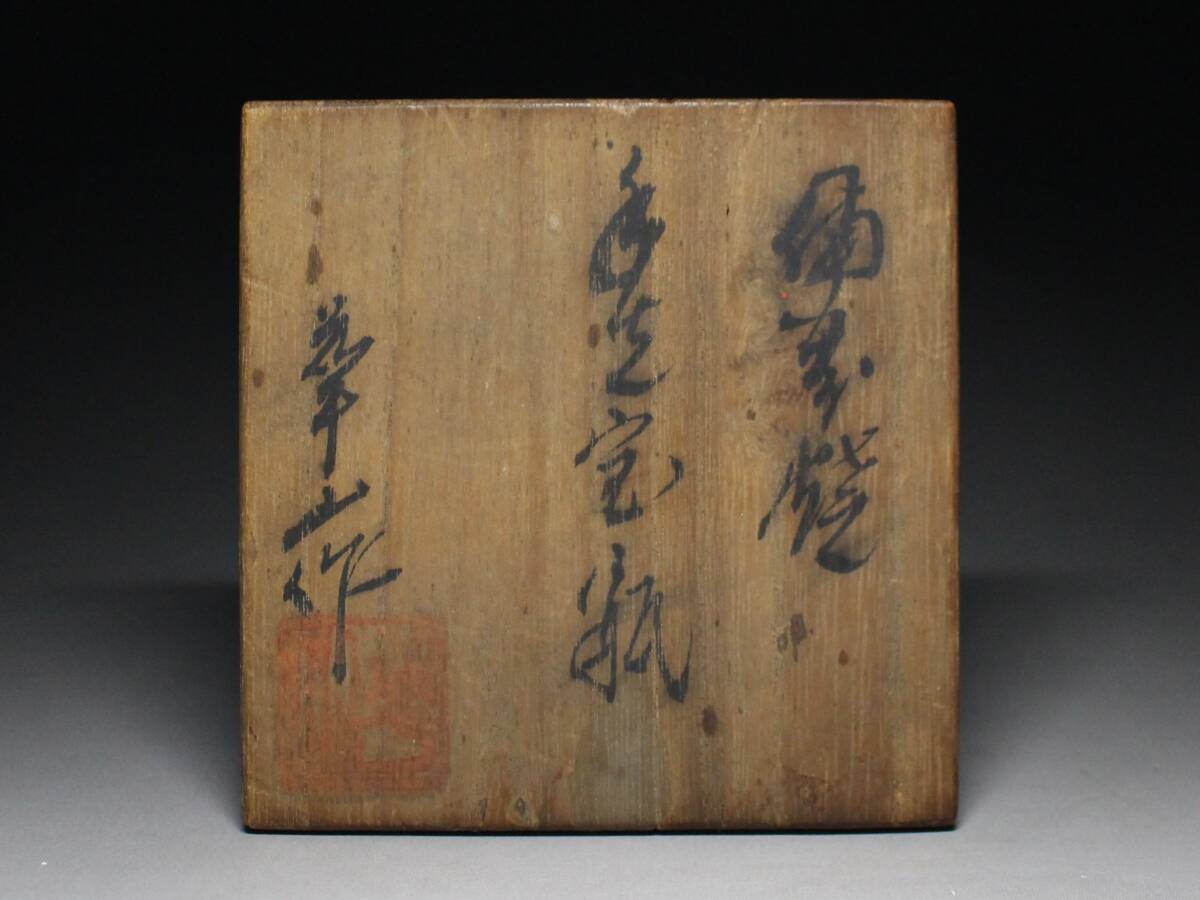 備前焼
手造宝瓶
華山作